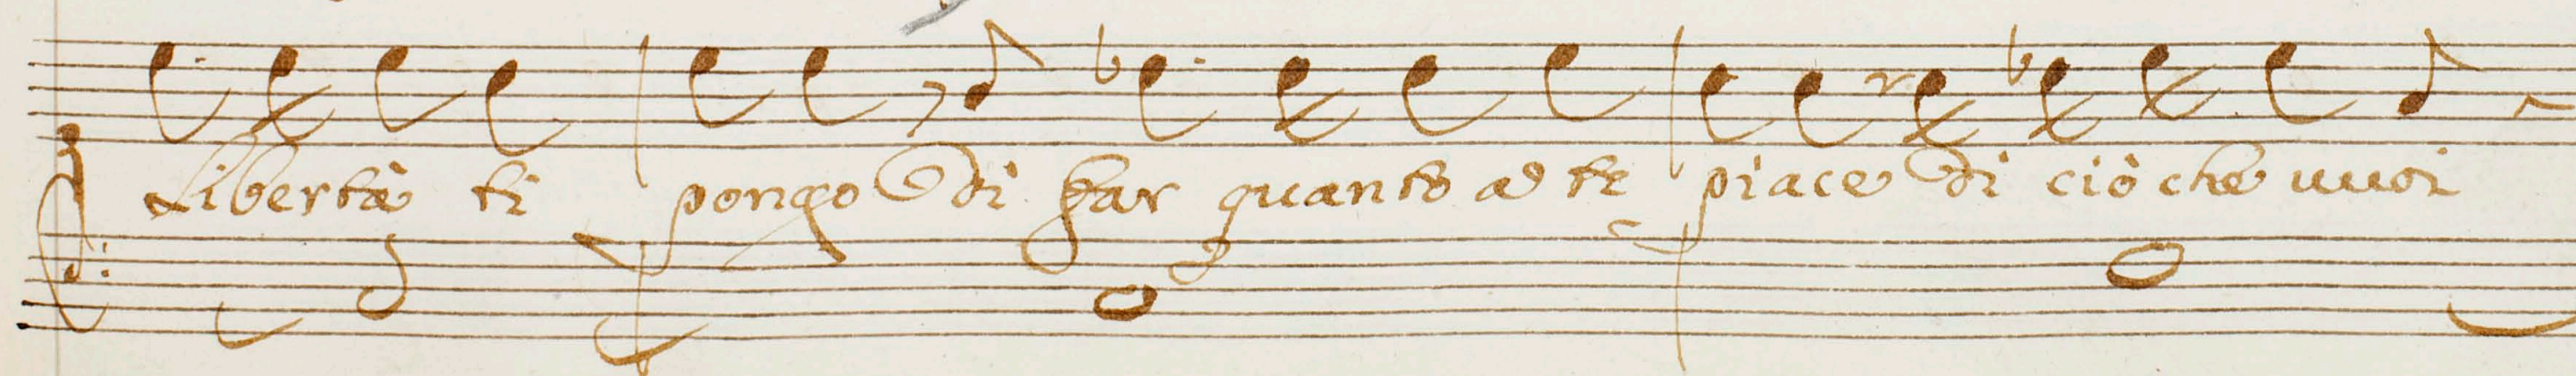 Libertà ti pongo di far quanto a te piace di ciò che vuoi